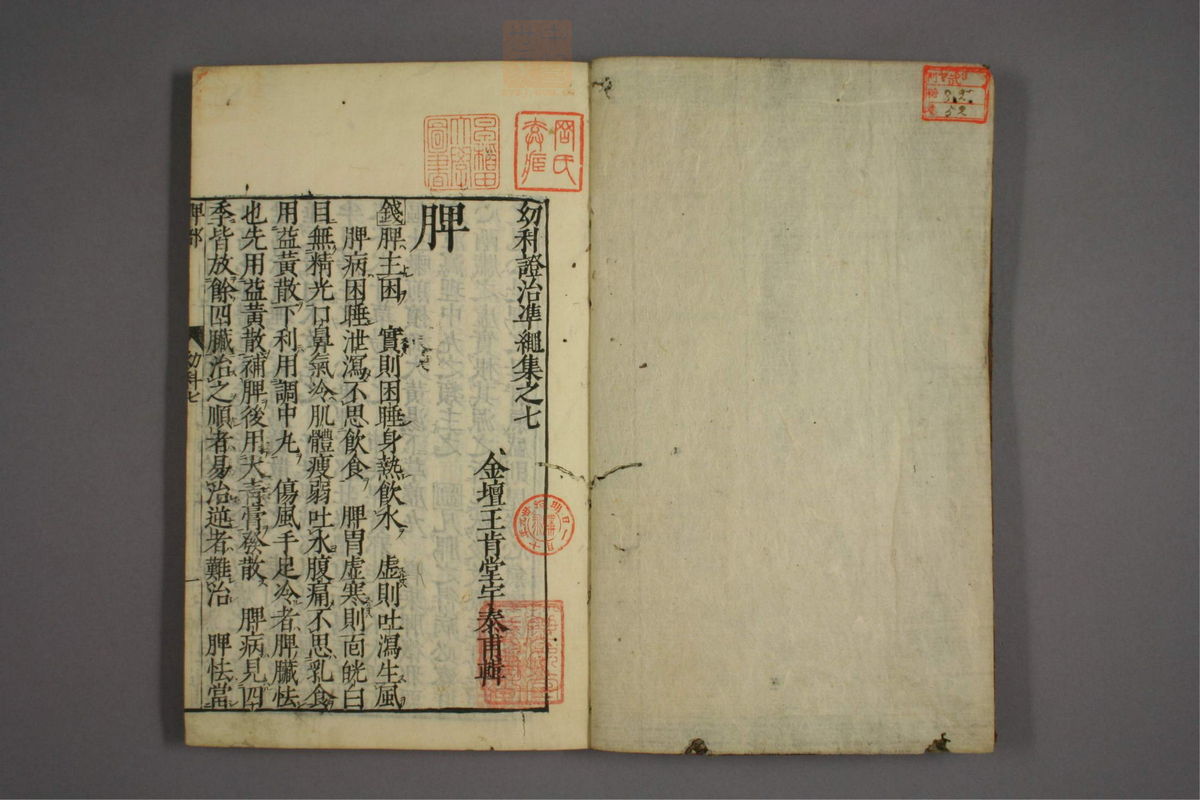 幼科證治準繩集之七
金壇王肯堂宇泰甫輯
脾
錢脾主困　實則困睡身熱飲水　虛則吐瀉生風
脾病困睡泄瀉不思飲食　脾胃虛寒則面㿠白
目無精光口鼻氣冷肌體瘦弱吐水腹痛不思乳食
用益黃散下利用調中丸　傷風手足冷者脾臟怯
也先用益黃散補脾後用大青膏發散　脾病見四
季皆放餘四臟治之順者易治逆者難治　脾怯當
脾部
幼科七
早稻田大學圖書